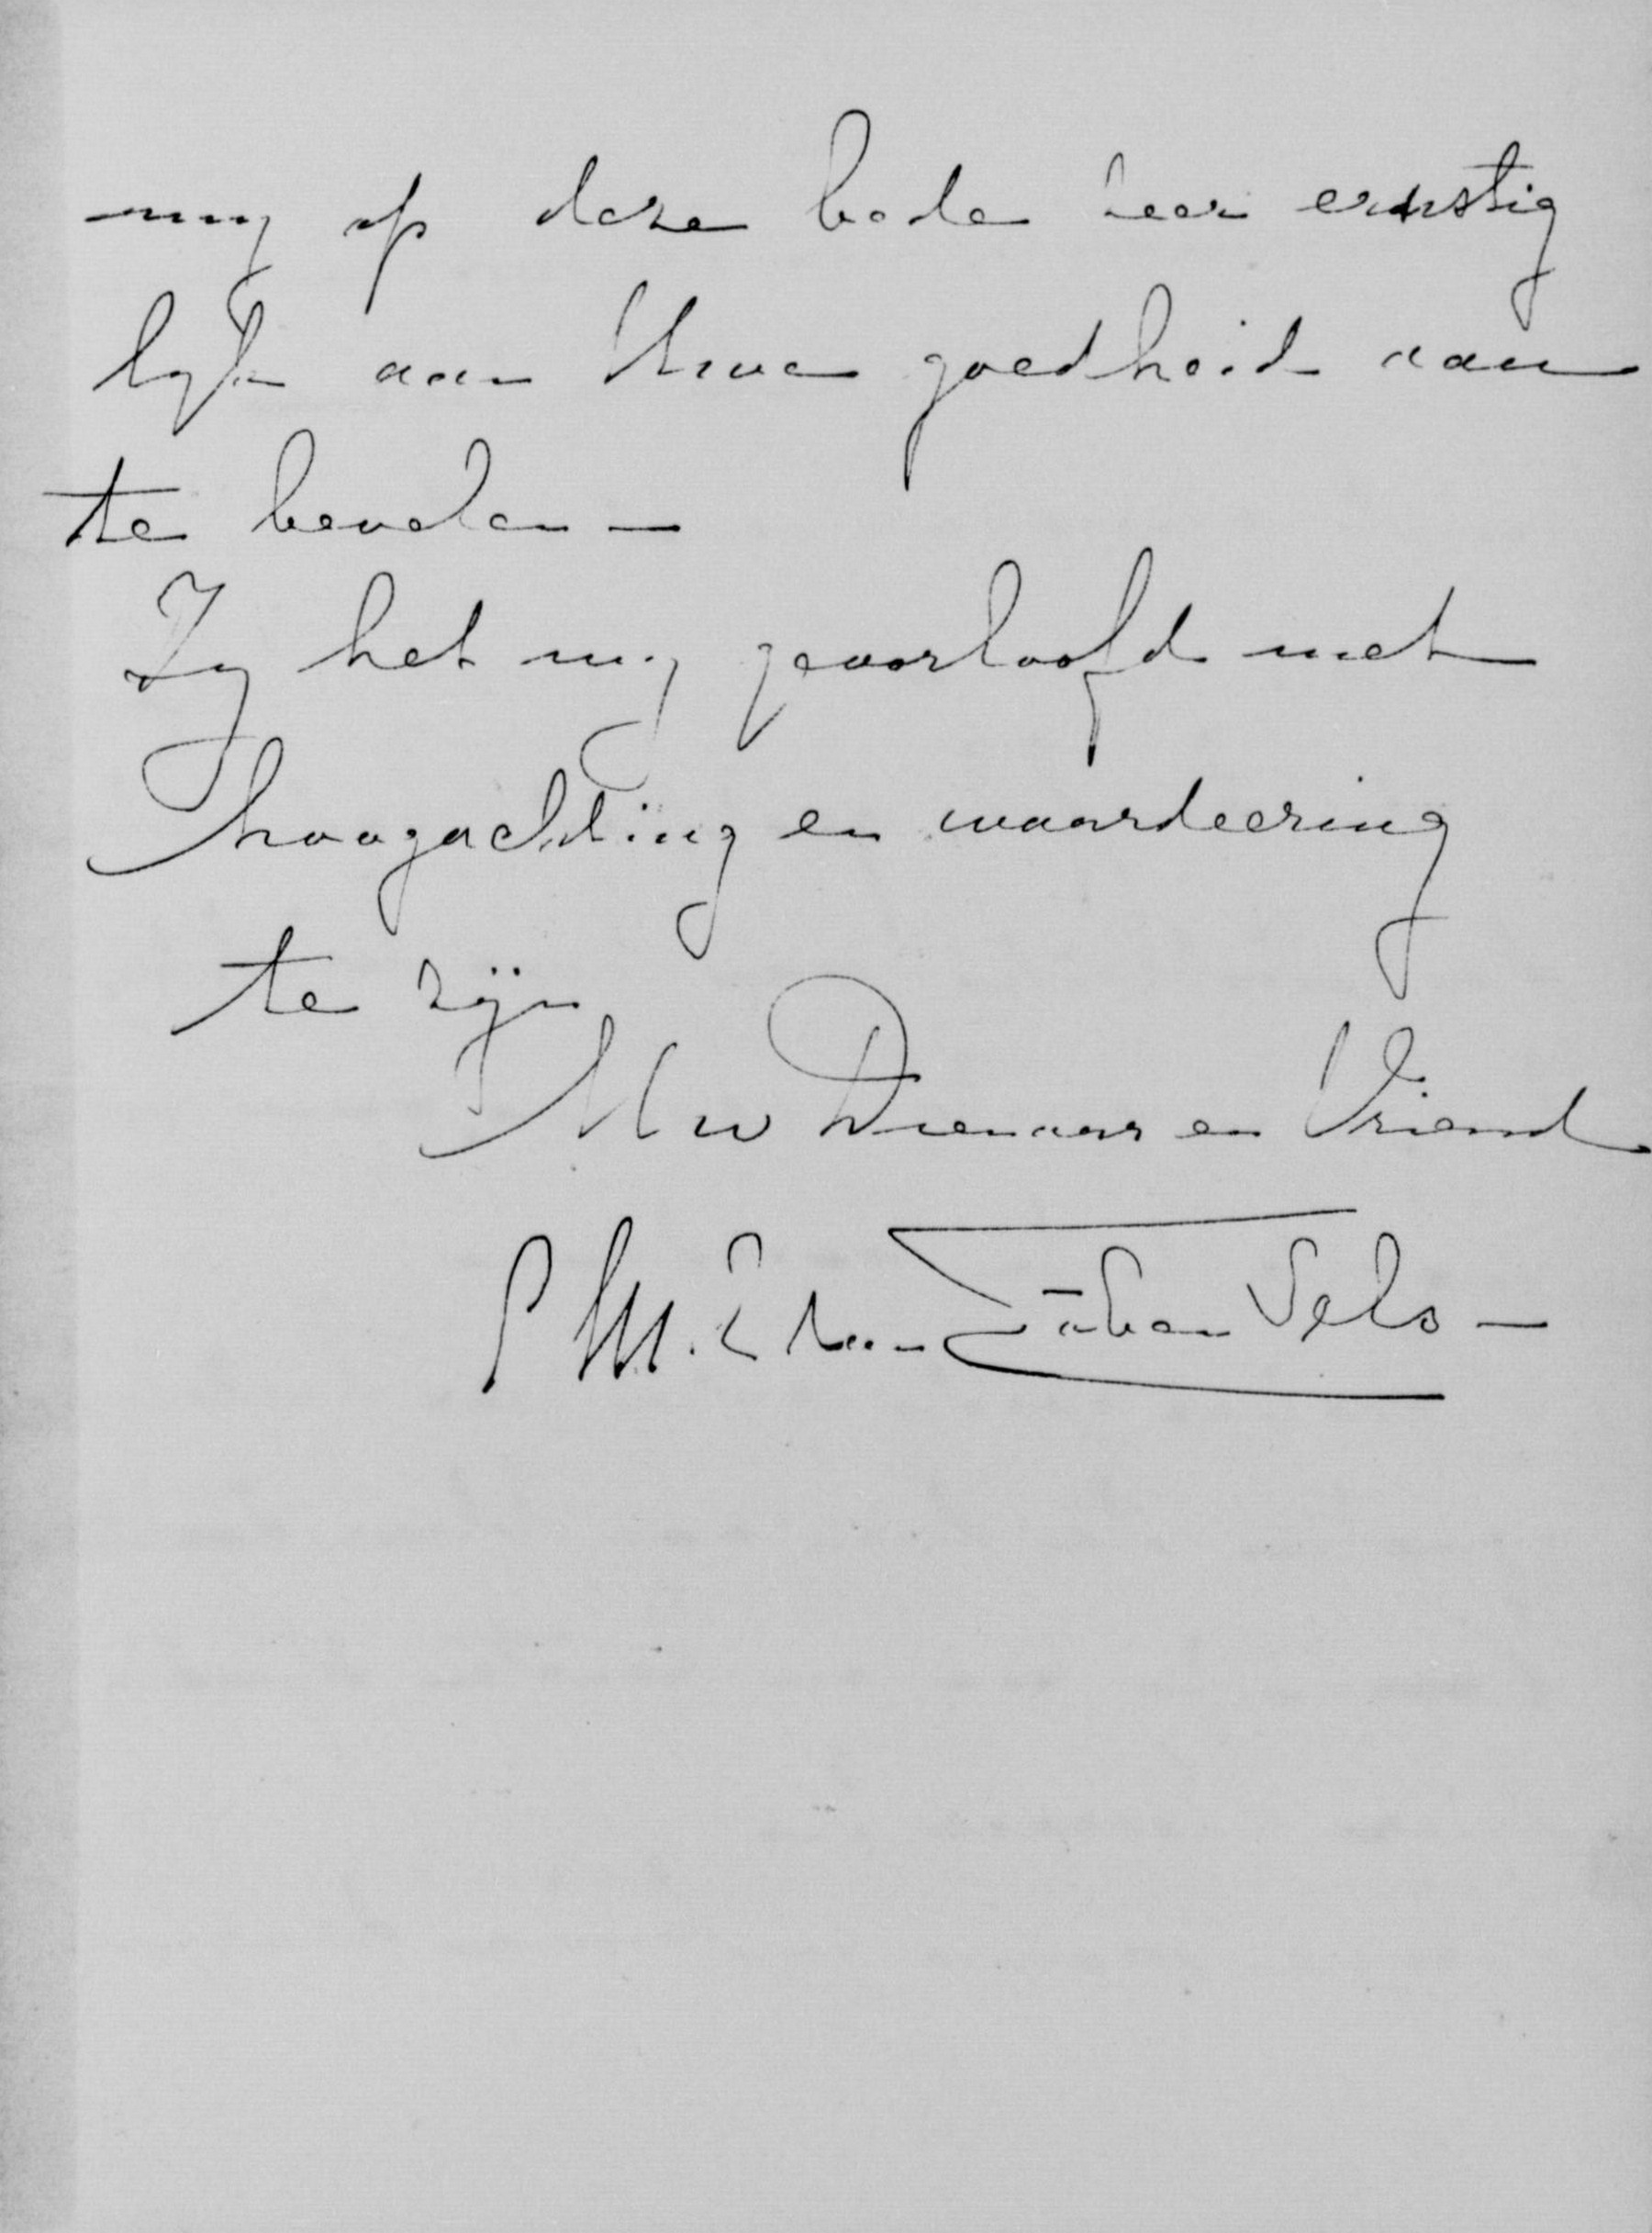 my op deze bede zeer ernstig
lyk aan Uwe goedheid aan
te bevelen —
Zy het my geoorloofd met
hoogachting en waardeering
te zijn
Uw Dienaar en Vriend
van Sels —